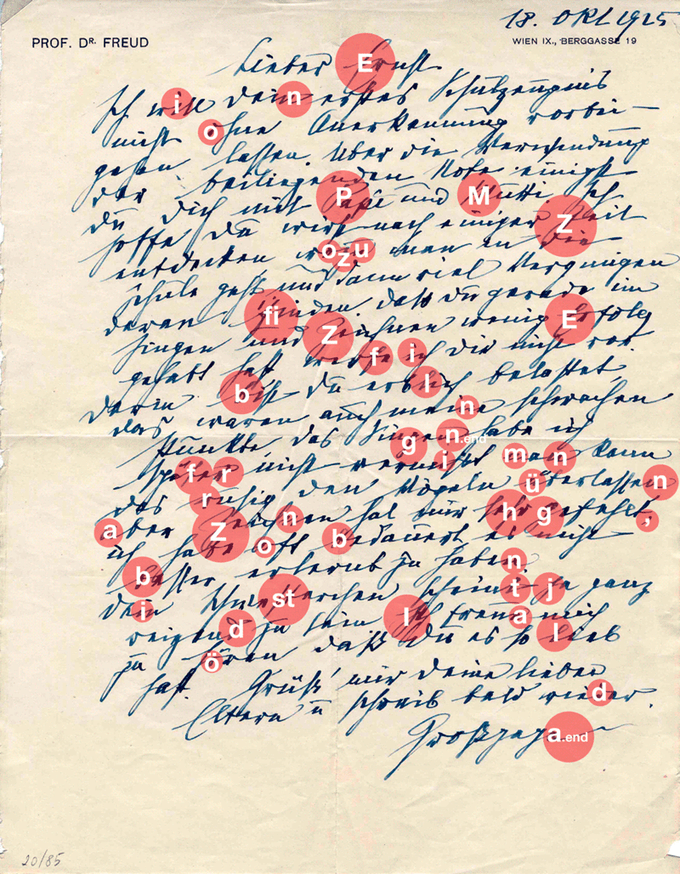 18. OKT 1925
PROF. DR. FREUD WIEN IX., BERGGASSE 19
Lieber Ernst
Ich will dein erstes Schulzeugnis
nicht ohne Anerkennung vorbei-
gehen lassen. Über die Verwendung
der beiliegenden Note einigst
du dich mit Papa und Mutti. Ich
hoffe du wirst nach einiger Zeit
entdecken wozu man in die
Schule geht und dann viel Vergnügen
daran finden. Daß du gerade im
Singen und Zeichnen wenig Erfolg
gehabt hast werfe ich dir nicht vor.
Darin bist du erblich belastet,
das waren auch meine schwachen
Punkte. Das Singen habe ich
später nicht vermißt man kann
das ruhig den Vögeln überlassen
aber Zeichnen hat mir sehr gefehlt,
ich habe oft bedauert es nicht
besser erlernt zu haben.
Dein Schwesterchen scheint ja ganz
reizend zu sein. Ich freue mich
zu hören daß du es so lieb
hast. Grüß' mir deine lieben
Eltern u schreib bald wieder.
Großpapa
20/85